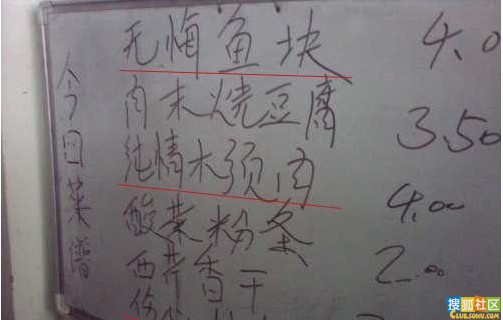 今日菜谱
无悔鱼块 4.0
肉末烧豆腐 3.50
纯情木须肉 4.00
酸菜粉条 2.00
西芹香干
搜狐社区
CLUB.SOHU.COM